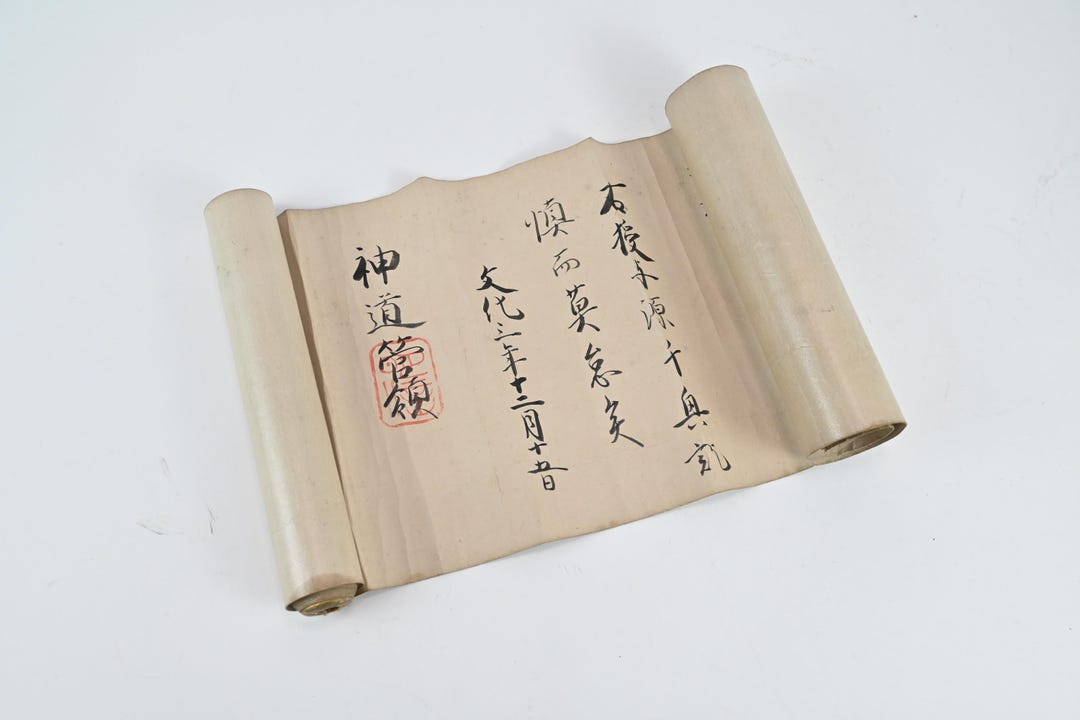 右授与源千興訖
慎而莫怠矣
文化三年十二月十五日
神道管領